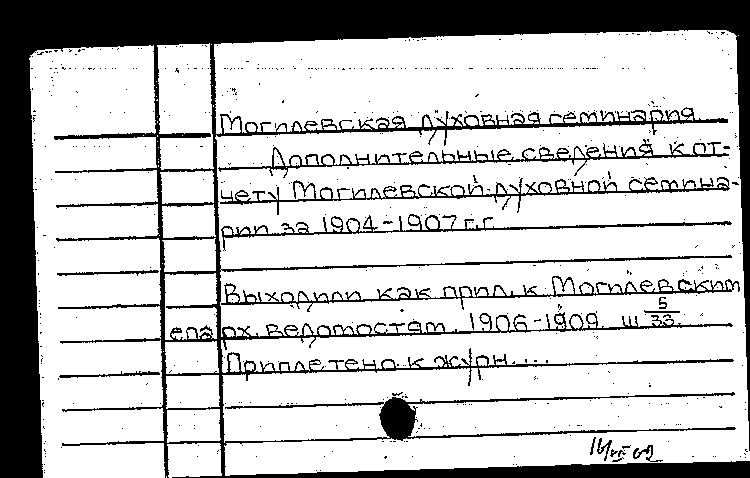 Могилевская духовная семинария
Дополнительные сведения к от-
чету Могилевской духовной семина-
рии за 1904-1907 г.г.
Выходили как прил. к Могилевским
епарх. ведомостям. 1906-1909 ш 5/33.
Приплетено к журн....